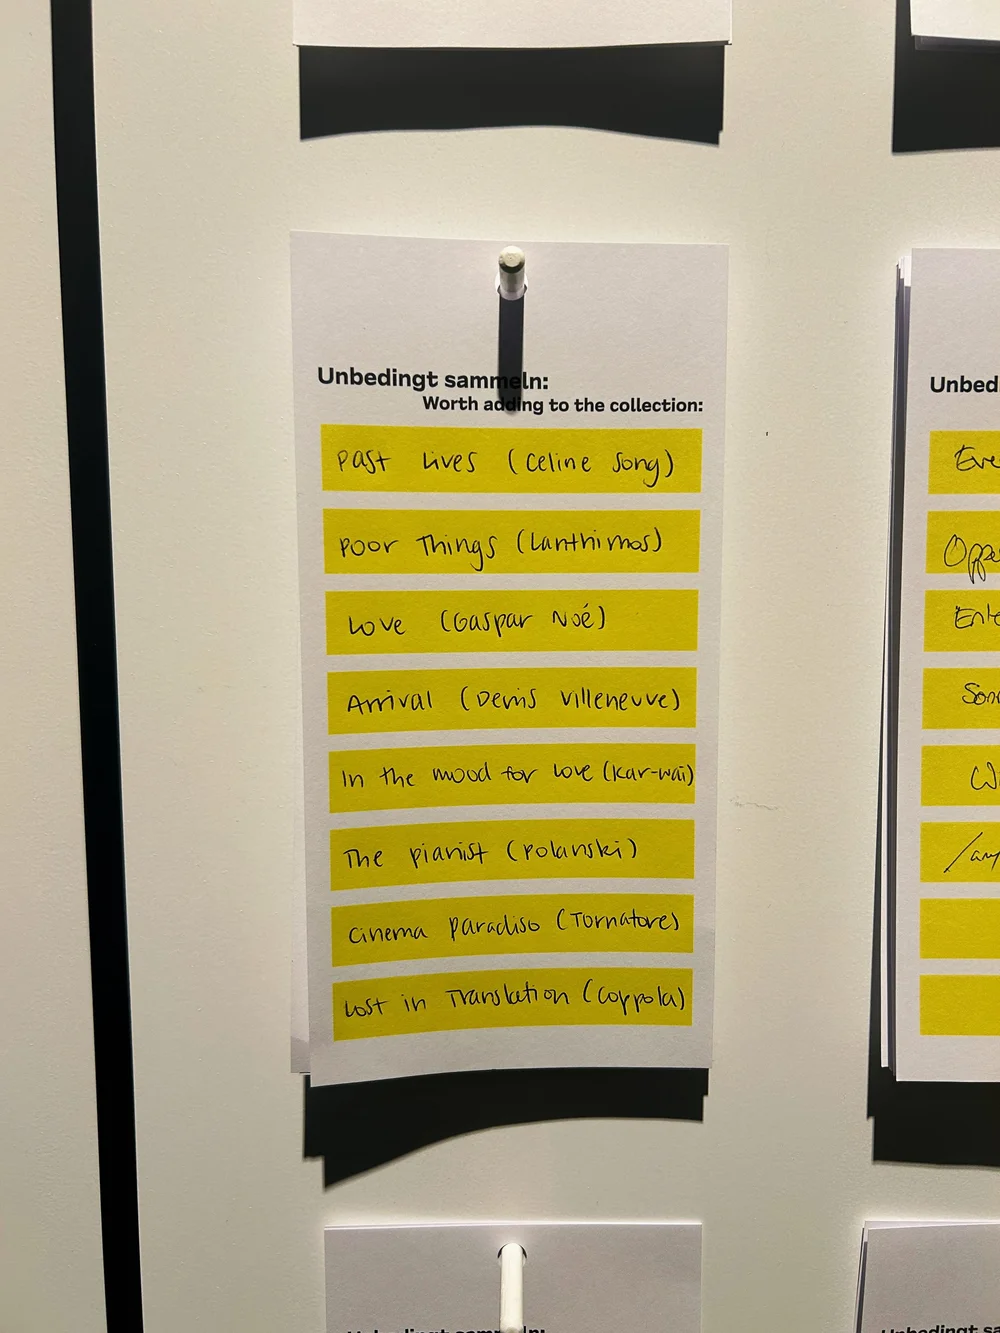 Unbedingt sammeln:
Worth adding to the collection:
Past Lives (Celine Song)
Poor Things (Lanthimos)
Love (Gaspar Noé)
Arrival (Denis Villeneuve)
In the mood for love (Kar-wai)
The pianist (Polanski)
Cinema Paradiso (Tornatore)
Lost in Translation (Coppola)
Unbed
Eve
Oppe
Ente
Unbedingt sammeln:
Unbedingt sa